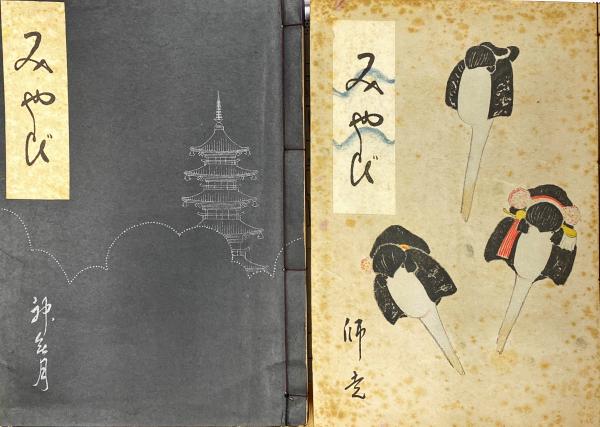 みやび
神無月
みやび
師走